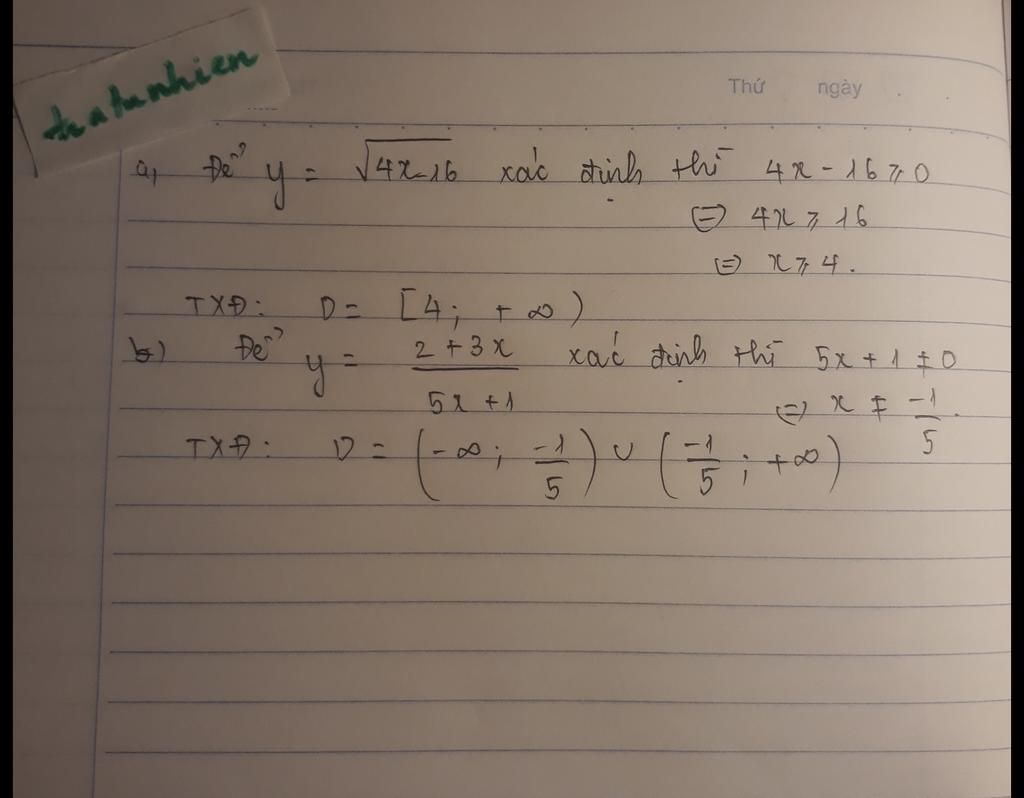 thatunhien
Thứ ngày
a, Để y = √(4x-16) xác định thì 4x - 16 ⩾ 0
⇔ 4x ⩾ 16
⇔ x ⩾ 4.
TXĐ: D = [4; +∞)
b) Để y = (2 + 3x)/(5x + 1) xác định thì 5x + 1 ≠ 0
⇔ x ≠ -1/5.
TXĐ: D = (-∞; -1/5) ∪ (-1/5; +∞)